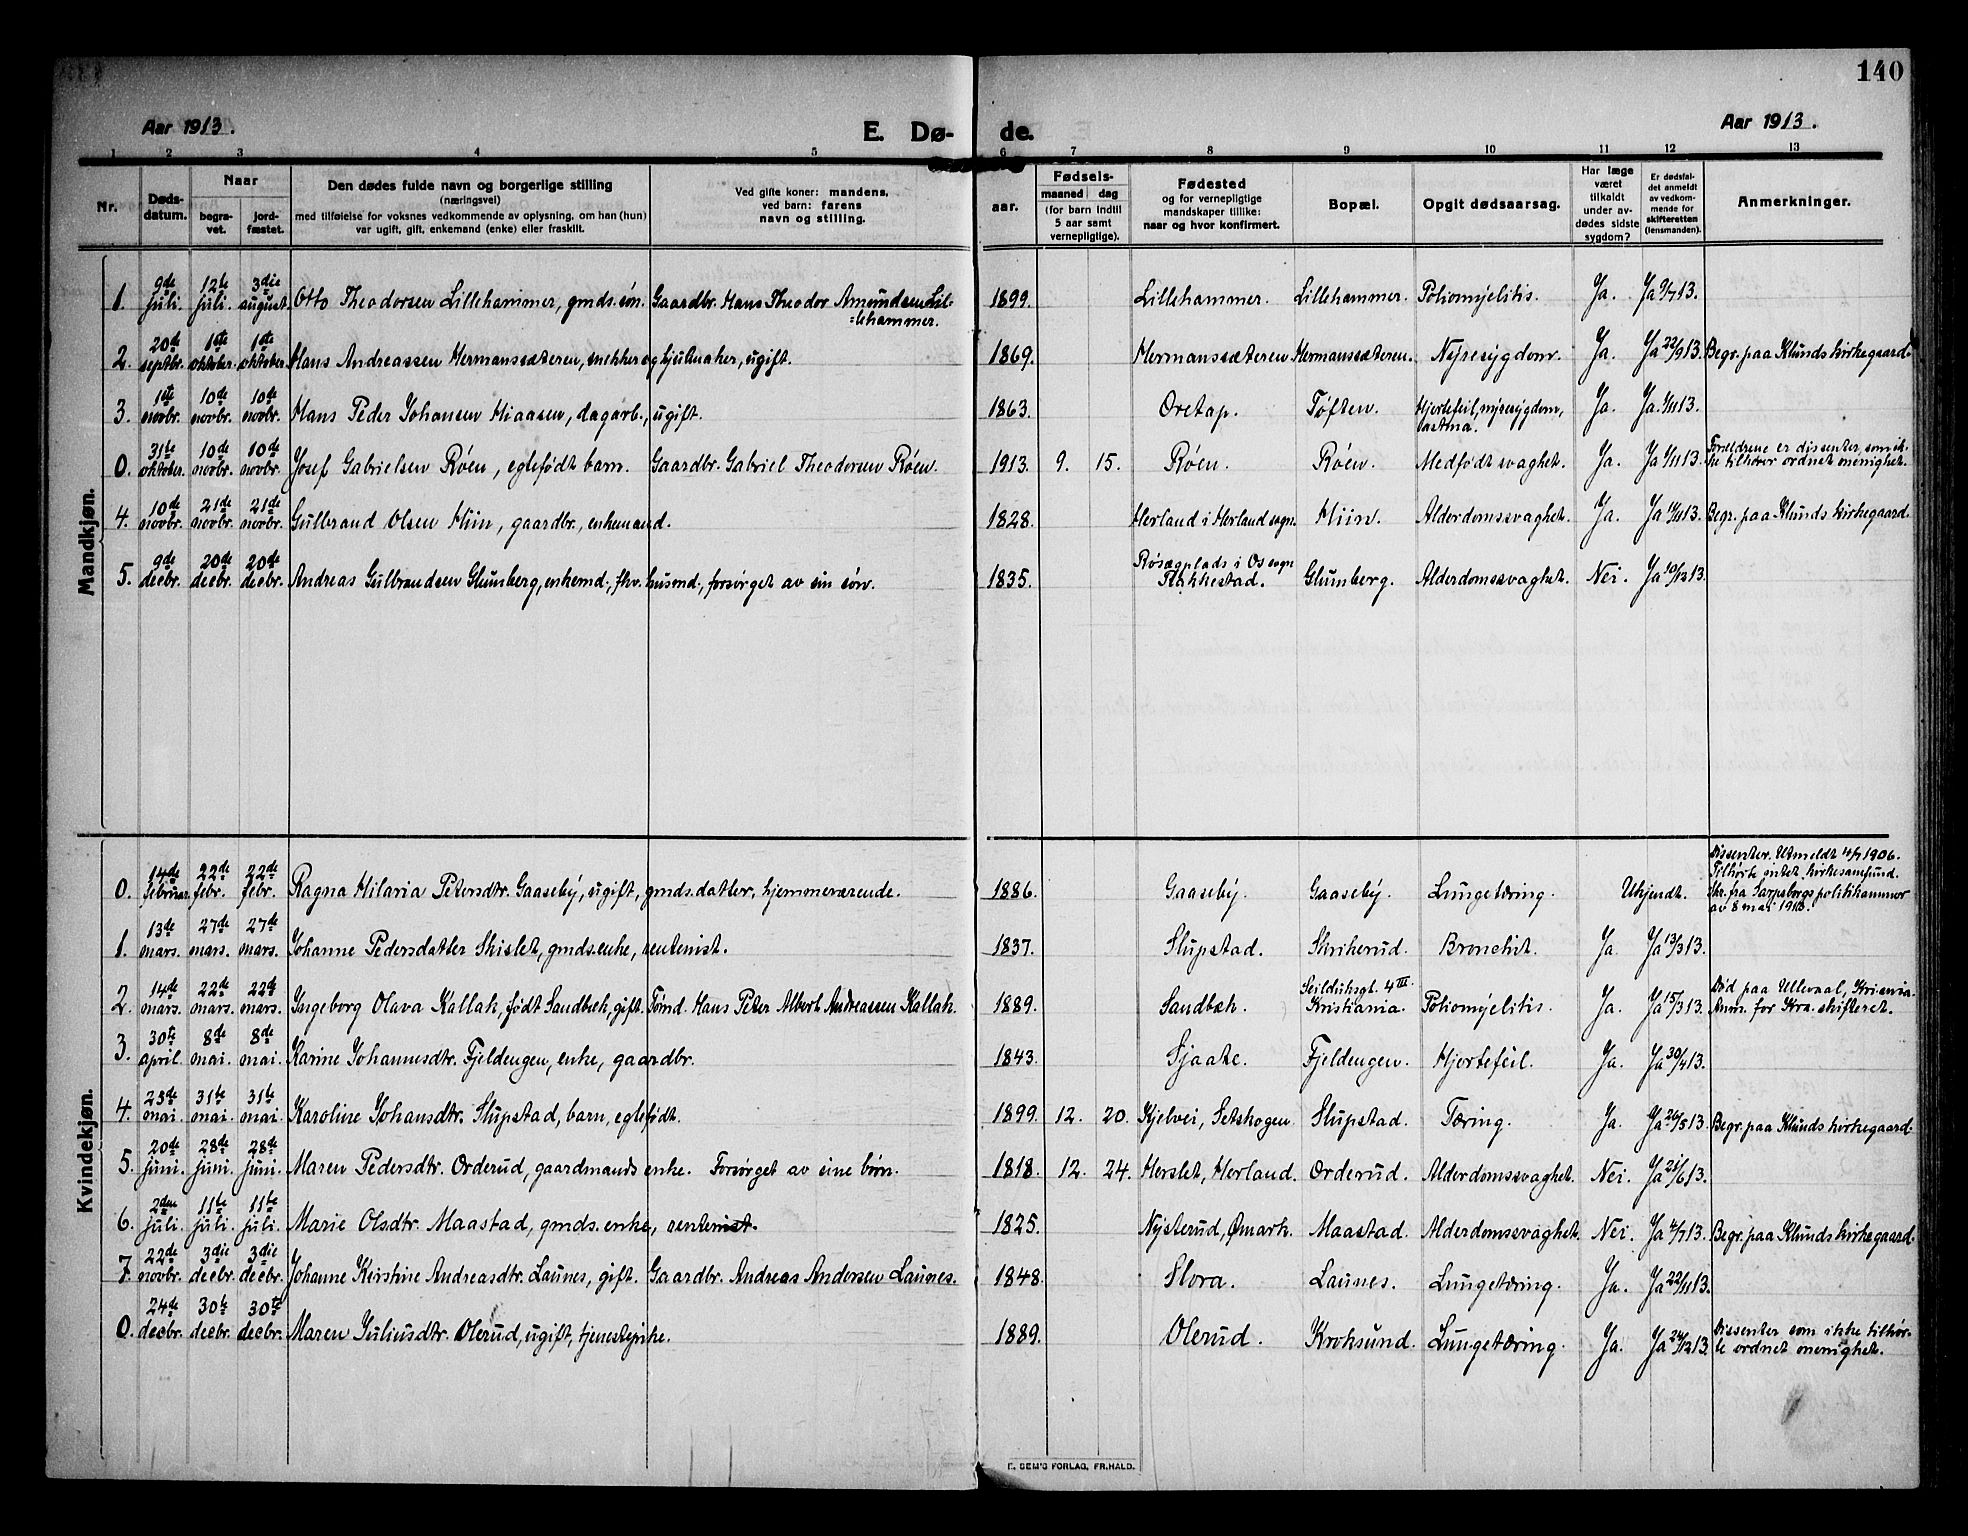 140
Aar 1913.
E. Dø- de.
Aar 1913.
1 2 3 4 5 6 7 8 9 10 11 12 13
Nr.
Døds-
datum.
Naar
begra-
vet.
jord-
fæstet.
Den dødes fulde navn og borgerlige stilling
(næringsvei)
med tilføielse for voksnes vedkommende av oplysning, om han (hun)
var ugift, gift, enkemand (enke) eller fraskilt.
Ved gifte koner: mandens,
ved barn: farens
navn og stilling.
aar.
Fødsels-
maaned dag
(for barn indtil
5 aar samt
vernepligtige).
Fødested
og for vernepligtige
mandskaper tillike:
naar og hvor konfirmert.
Bopæl.
Opgit dødsaarsag.
Har læge
været
tilkaldt
under av-
dødes sidste
sygdom?
Er dødsfal-
det anmeldt
av vedkom-
mende for
skifteretten
(lensmanden).
Anmerkninger.
Mandkjøn.
1. 9de juli. 12te juli. 3die august. Otto Theodorsen Lillehammer, gmds. søn. Gaardbr. Hans Theodor Amundsen Lil-
=lehammer. 1899. Lillehammer. Lillehammer. Poliomyelitis. Ja. Ja 9/7 13.
2. 20de septbr. 1ste oktober. 1ste oktober. Hans Andreassen Hermanssæteren, snekker og hjulmaker, ugift. 1869. Hermanssæteren Hermanssæteren. Nyresygdom. Ja. Ja 22/9 13. Begr. paa Klunds kirkegaard.
3. 1ste novbr. 10de novbr. 10de novbr. Hans Peder Johansen Hiaasen, dagarb., ugift. 1863. Oretap. Tøften. Hjertefeil, nyresygdom,
astma. Ja. Ja. 1/11 13.
0. 31te oktober. 10de novbr. 10de novbr. Josef Gabrielsen Røen, egtefødt barn. Gaardbr. Gabriel Theodorsen Røen. 1913. 9. 15. Røen. Røen. Medfødt svaghet. Ja. Ja 1/11 13. Forældrene er dissenter, som ik-
ke tilhører ordnet menighet.
4. 10de novbr. 21de novbr. 21de novbr. Gulbrand Olsen Hiin, gaardbr., enkemand. 1828. Herland i Herland sogn. Hiin. Alderdomssvaghet. Ja. Ja 11/11 13. Begr. paa Klunds kirkegaard.
5. 9de decbr. 20de decbr. 20de decbr. Andreas Gulbrandsen Glumberg, enkemd., fhv. husmd., forsørget av sin søn. 1835. Røsægplads i Os sogn
Rakkestad. Glumberg. Alderdomssvaghet. Nei. Ja 10/12 13.
Kvindekjøn.
0. 14de februar 22de febr. 22de febr. Ragna Hilaria Petersdtr. Gaaseby, ugift, gmds. datter, hjemmeværende. 1886. Gaaseby. Gaaseby. Lungetæring. Ukjendt. Dissenter. Utmeldt 4/7 1906.
Tilhørte intet kirkesamfund.
Skr. fra Sarpsborgs politikammer
av 8 mai 1913.
1. 13de mars. 27de mars. 27de mars. Johanne Pedersdatter Skislet, gmds. enke, rentenist. 1837. Slupstad. Skrikerud. Bronchit. Ja. Ja 13/3 13.
2. 14de mars. 22de mars. 22de mars. Ingeborg Olava Kallak, født Sandbæk, gift. Tømd. Hans Peter Albert Andreassen Kallak. 1889. Sandbæk. Seilduksgt. 4 III
Kristiania. Poliomyelitis. Ja. Ja 15/3 13. Død paa Ullevaal, Kr.ania.
Anm. for Kra. skifteret.
3. 30te april. 8de mai. 8de mai. Karine Johannesdtr. Fjeldengen, enke, gaardbr. 1843. Fjeldengen. Hjertefeil. Ja. Ja 30/4 13.
4. 23de mai. 31te mai. 31te mai. Karoline Johansdtr. Slupstad, barn, egtefødt. 1899. 12. 20. Kjelvei, Setskogen Slupstad. Tæring. Ja. Ja 26/5 13. Begr. paa Klunds kirkegaard.
5. 20de juni. 28de juni. 28de juni. Maren Pedersdtr. Orderud, gaardmands enke. Forsørget av sine børn. 1818. 12. 24. Herslet, Herland. Orderud. Alderdomssvaghet. Nei. Ja 21/6 13.
6. 2den juli. 11te juli. 11te juli. Marie Olsdtr. Maastad, gmds. enke, rentenist. 1825. Nysterud, Ømark. Maastad. Alderdomssvaghet. Nei. Ja 4/7 13. Begr. paa Klunds kirkegaard.
7. 22de novbr. 3die decbr. 3die decbr. Johanne Kirstine Andreasdtr. Launes, gift. Gaardbr. Andreas Andersen Launes. 1848. Slora. Launes. Lungetæring. Ja. Ja 22/11 13.
0. 24de decbr. 30te decbr. 30te decbr. Maren Juliusdtr. Olerud, ugift, tjenestepike. 1889. Olerud. Kroksund. Lungetæring. Ja. Ja 24/12 13. Dissenter som ikke tilhør-
te ordnet menighet.
E. SEM'S FORLAG, FR.HALD.